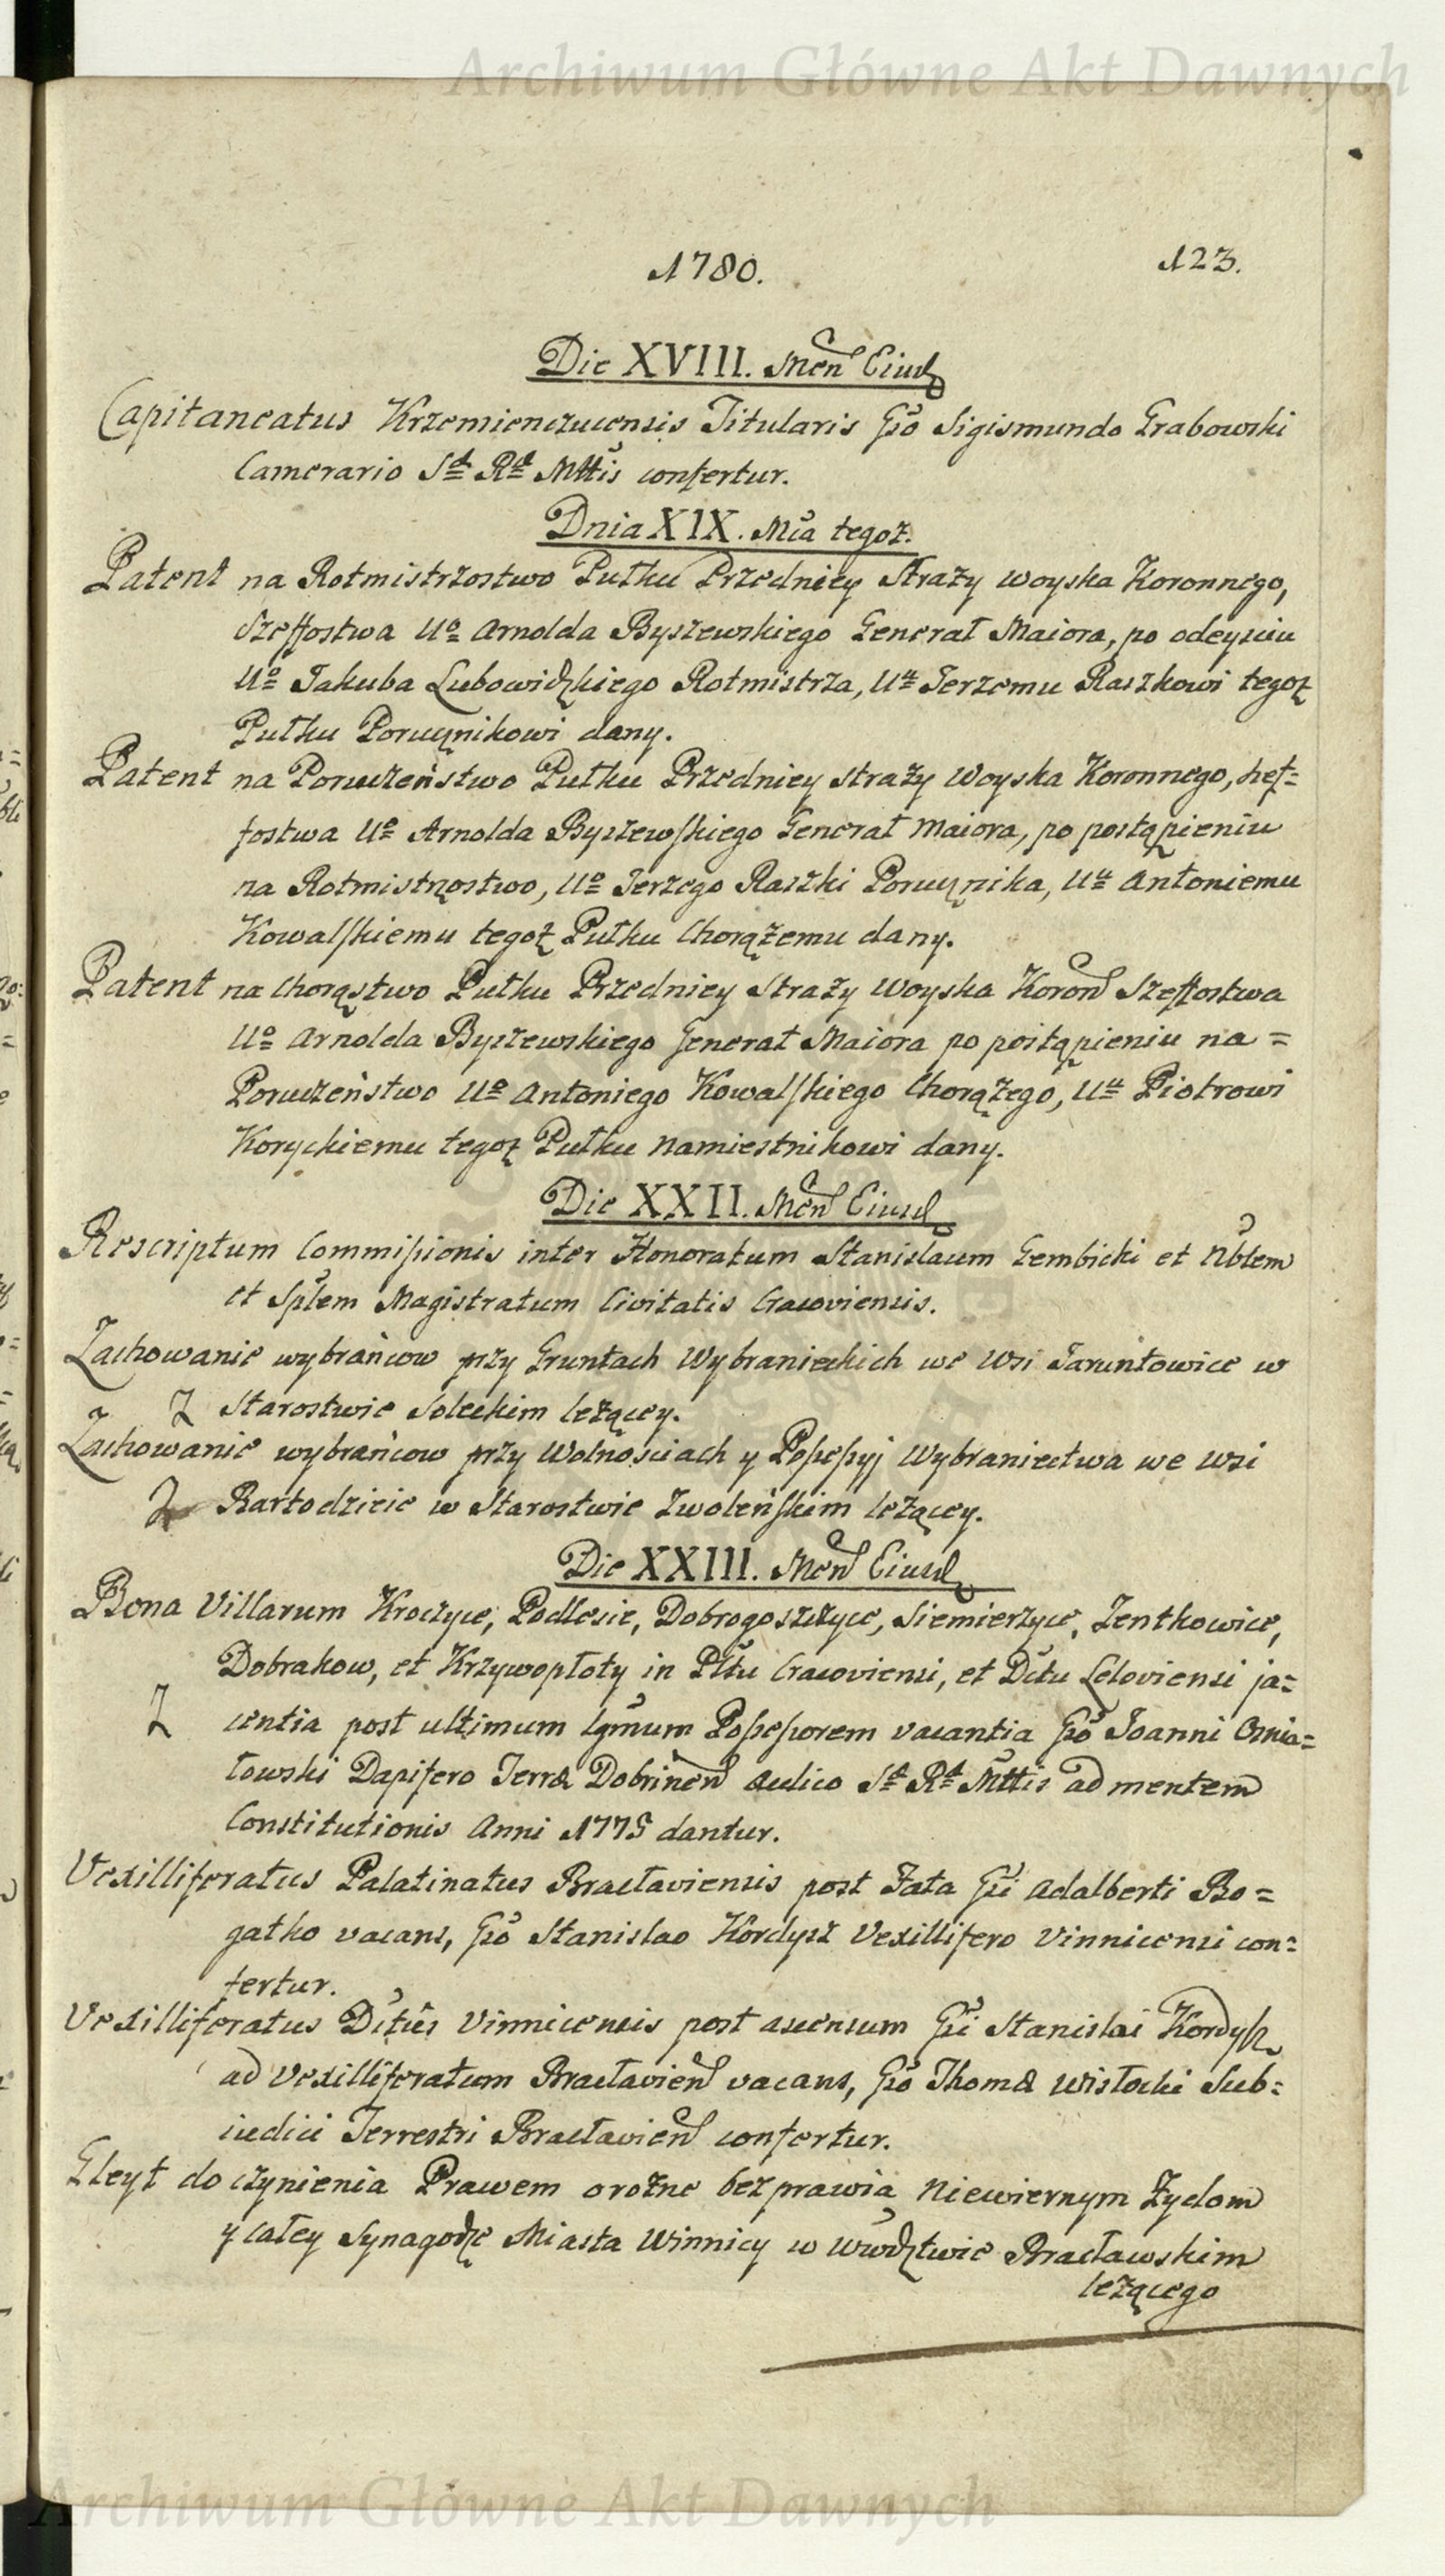 Archiwum Główne Akt Dawnych
1780.
123.
Die XVIII. Men Eiusd
Capitaneatus Krzemienczucensis Titularis Gso Sigismundo Grabowski
Camerario S R Mttis confertur.
Dnia XIX. Mca tegoż.
Patent na Rotmistrzostwo Pułku Przedniey Straży woyska Koronnego,
Szeffostwa Uo Arnolda Byszewskiego Generał Maiora, po odeysciu
Uo Jakuba Lubowidzkiego Rotmistrza, Uu Jerzemu Raszkowi tegoz
Pułku Porucznikowi dany.
Patent na Poruczeństwo Pułku Przedniey straży Woyska Koronnego, szef=
fostwa Uo Arnolda Byszewskiego Generał Maiora, po postąpieniu
na Rotmistrzostwo, Uo Jerzego Raszki Porucznika, Uu Antoniemu
Kowalskiemu tegoz Pułku Chorążemu dany.
Patent na Chorąstwo Pułku Przedniey Straży Woyska Koron Szeffostwa
Uo Arnolda Byszewskiego Generał Maiora po postąpieniu na=
Poruczeństwo Uo Antoniego Kowalskiego Chorążego, Uu Piotrowi
Koryckiemu tegoz Pułku Namiestnikowi dany.
Die XXII. Men Eiusd
Rescriptum Commissionis inter Honoratum Stanislaum Gembicki et Nblem
et Splem Magistratum Civitatis Cracoviensis.
Zachowanie wybrańcow przy Gruntach Wybranieckich we Wsi Jaruntowice w
Z Starostwie Soleckim leżącey.
Zachowanie wybrańcow przy Wolnosciach y Possessyj Wybraniectwa we wsi
Z Bartodzieie w Starostwie Zwoleńskim leżącey.
Die XXIII. Men Eiusd
Bona Villarum Kroczyce, Podlesie, Dobrogoszczyce, Siemierzyce, Zentkowice,
Dobrakow, et Krzywopłoty in Pltu Cracoviensi, et Dctu Leloviensi ja=
Z centia post ultimum lgmum Possessorem vacantia Gso Joanni Omia=
towski Dapifero Terræ Dobrinen Aulico S R Mttis ad mentem
Constitutionis Anni 1775 dantur.
Vexilliferatus Palatinatus Bracłaviensis post Fata Gsi Adalberti Bo=
gatko vacans, Gso Stanislao Kordysz Vexillifero Vinnicensi con=
fertur.
Vexilliferatus Dctus Vinnicensis post ascensum Gsi Stanislai Kordysz
ad Vexilliferatum Bracłavien vacans, Gso Thomæ Wisłocki Sub=
iudici Terrestri Bracłavien confertur.
Gleyt do czynienia Prawem o rożne bezprawia Niewiernym Żydom
y całey Synagodze Miasta Winnicy w Wwdztwie Bracławskim
leżącego
Archiwum Główne Akt Dawnych